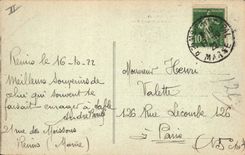 III
10
MARNE
Reims le 16-10-22
Meilleurs Souvenirs de
celui qui souvent se
faisait enrager à table
André
21 rue des Moissons
Reims (Marne)
Monsieur Henri
Valette
126 Rue Lecombe 126
à Paris